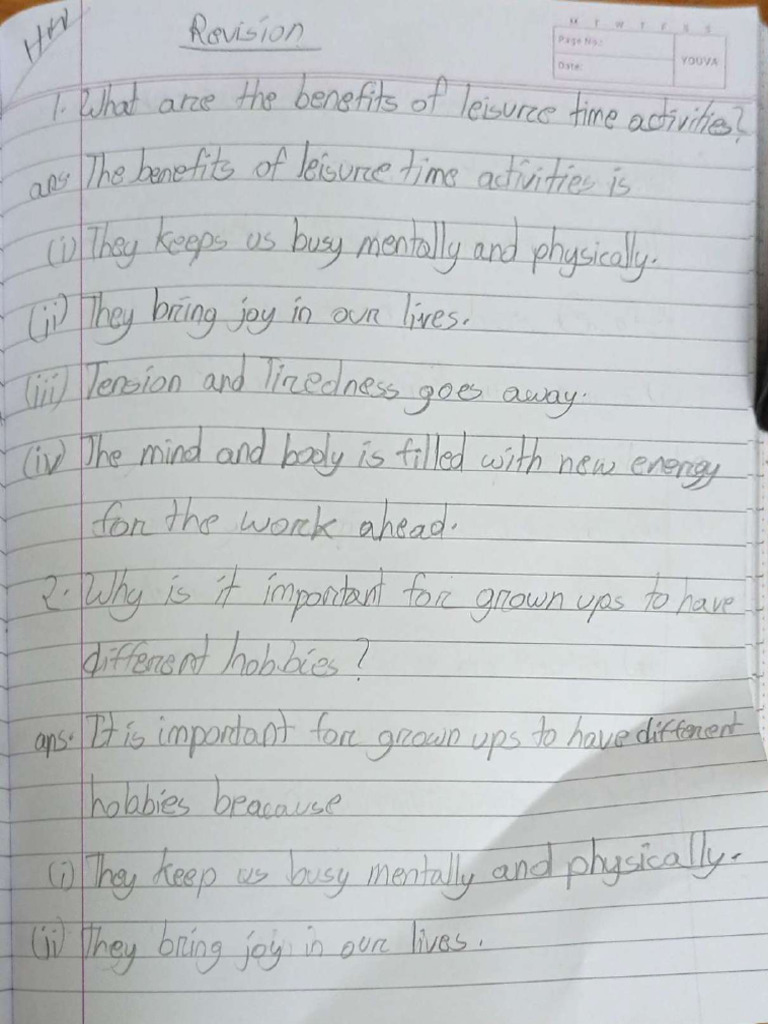 HW
Revision
M T W T F S S
Page No.:
Date:
YOUVA
1. What are the benefits of leisure time activities?
ans The benefits of leisure time activities is
(i) They keeps us busy mentally and physically.
(ii) They bring joy in our lives.
(iii) Tension and Tiredness goes away.
(iv) The mind and body is filled with new energy
for the work ahead.
2. Why is it important for grown ups to have
different hobbies?
ans. It is important for grown ups to have different
hobbies beacause
(i) They keep us busy mentally and physically.
(ii) They bring joy in our lives.